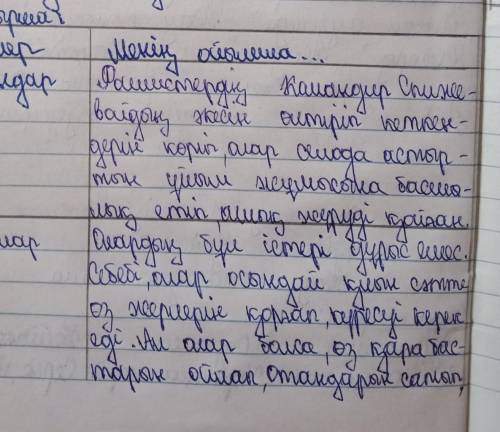 Менің ойымша...
лдар Фашистердің Командир Спиже-
вайдың әкесін өлтіріп кеткен-
дерін көріп, олар селода астыр-
тын ұйым жұмысына басшы-
лық етіп, ашық жүруді қойған.
лар Олардың бұл істері дұрыс емес.
Себебі, олар осындай қиын сәтте
өз жерлерін қорғап, күресуі керек
еді. Ал олар болса, өз қара бас-
тарын ойлап, Отандарын сатып,